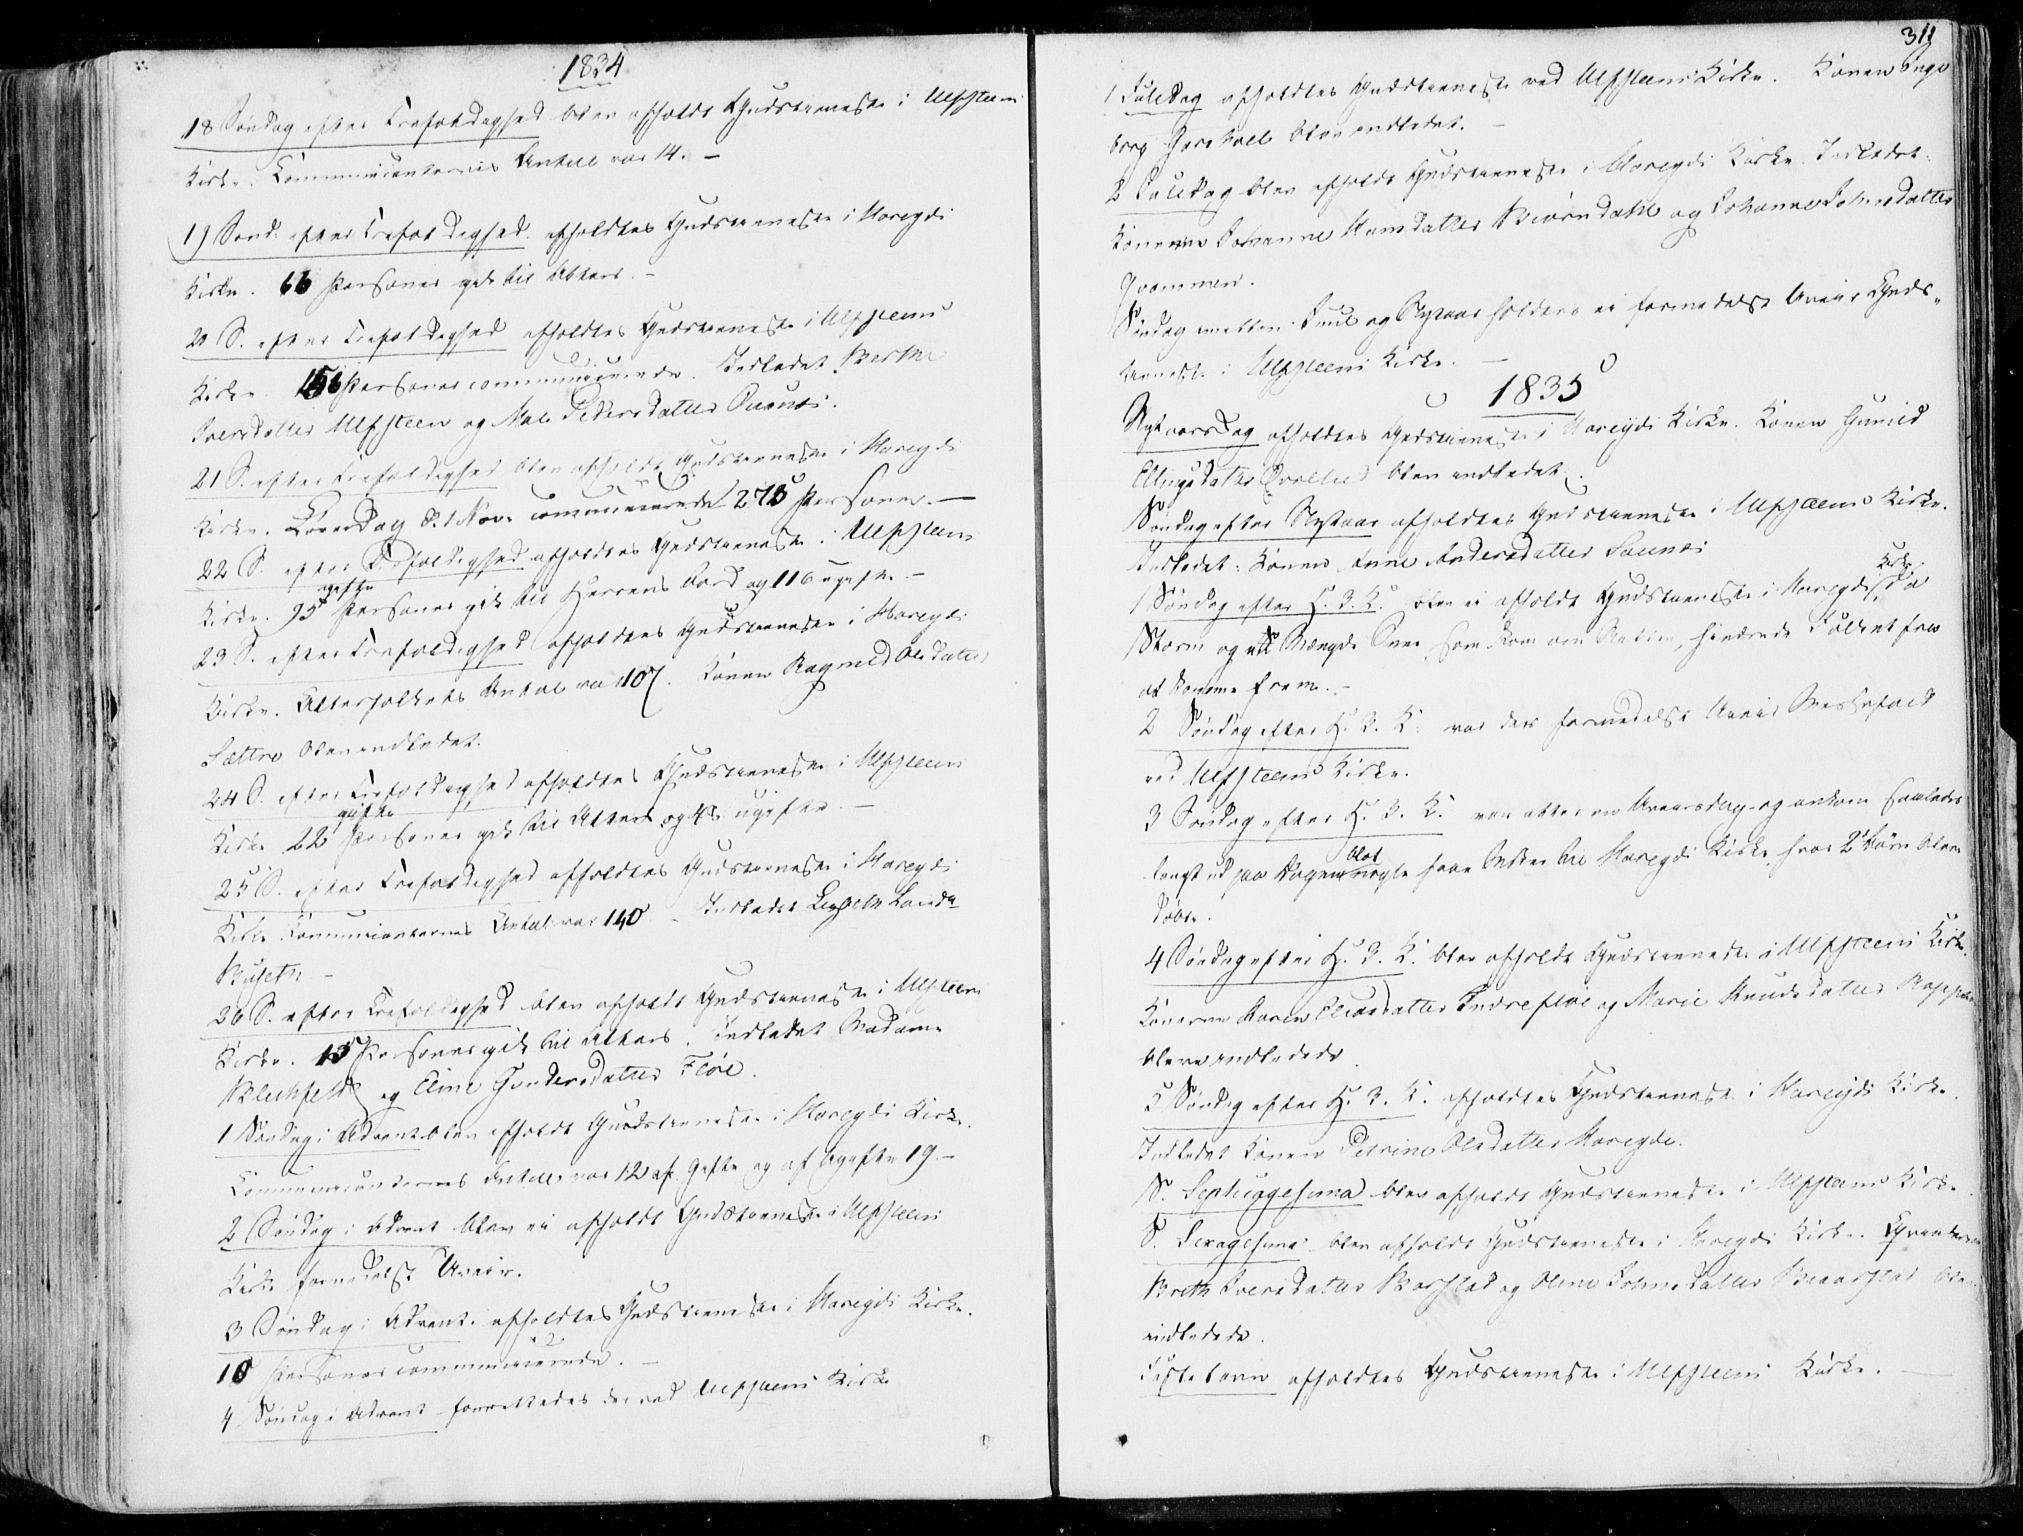 1834
18 Søndag efter Trefoldighed blev afholdt Gudstieneste i Ulfsteen
Kirke. Communicanternes Antall var 14. –
19 Sønd. efter Trefoldighed afholdtes Gudstieneste i Hareids
Kirke. 66 Personer gik til Alters. –
20 S. efter Trefoldighed afholdtes Gudstieneste i Ulfsteens
Kirke. 156 Personer communicerede. Indledet Berthe
Iversdatter Ulfsteen og Male Pedersdatter
21 S. efter Trefoldighed blev afholdt Gudstieneste i Hareids
Kirke. Løverdag d. 1 Nov. communicerede 275 Personer. –
22 S. efter Trefoldighed afholdtes Gudstieneste i Ulfsteens
Kirke. 95 gifte Personer gik til Herrens bord og 116 ugifte. –
23 S. efter Trefoldighed afholdtes Gudstieneste i Hareids
Kirke. Altersfolkets Antal var 107. Konen Ragnild Olsdatter
Sættre blev indledet.
24 S. efter Trefoldighed afholdtes Gudstieneste i Ulfsteens
Kirke 22 gifte Personer gik til Alters og 48 ugifte. –
25 S. efter Trefoldighed afholdtes Gudstieneste i Hareids
Kirke. Communicanternes Antal var 140. – Indledet Lisbeth
26 S. efter Trefoldighed blev afholdt Gudstieneste i Ulfsteens
Kirke. 15 Personer gik til Alters. Indledet Madame
og Eline Gundersdatter Fløe.
1 Søndag i Advent blev afholdt Gudstieneste i Hareids Kirke.
Communicanternes Antall var 12 af Gifte og af ugifte 19. –
2 Søndag i Advent blev ei afholdt Gudstieneste i Ulfsteens
Kirke formedelst Uveir.
3 Søndag i Advent afholdtes Gudstieneste i Hareids Kirke.
10 Personer communicerede. –
4 Søndag i Advent forrettedes der ved Ulfsteens Kirke
311
1 Juledag afholdtes Gudstieneste ved Ulfsteens Kirke. Konen Inge
borg blev indledet. –
2 Juledag blev afholdt Gudstieneste i Hareids Kirke. Indledet:
Konerne Johanne Hansdatter Biørndahl og Johanne Johnsdatter
Qvammen.
Søndag mellem Juul og Nytaar holdtes ei formedelst Uveir Guds-
tieneste i Ulfsteens Kirke. –
1835
Nytaarsdag afholdtes Gudstieneste i Hareids Kirke. Konen Gunild
blev indledet.
Søndag efter Nytaar afholdtes Gudstieneste i Ulfsteens Kirke.
Indledet: Konen Anne Andersdatter
1 Søndag efter H. 3. K. blev ei afholdt Gudstieneste i Hareids Kirke, da
Storm og en Mængde Snee, som kom om Natten, hindrede Folket fra
at komme frem. –
2 Søndag efter H. 3. K. var der formedelst Uveir Messefald
ved Ulfsteens Kirke.
3 Søndag efter H. 3. K. var atter en Uveirsdag og ankom saaledes
langt ud paa Dagen blot nogle faae Mster til Hareids Kirke, hvor 2 Børn bleve
døbte.
4 Søndag efter H. 3. K. blev afholdt Gudstieneste i Ulfsteens Kirke.
Konerne Karen Eliasdatter Indrefløe og Marie Knudsdatter
bleve indledede.
5 Søndag efter H. 3. K. afholdtes Gudstieneste i Hareids Kirke.
Indledet Konen Petrine Olsdatter Hareide.
S. Septuagesima blev afholdt Gudstieneste i Ulfsteens Kirke
S. Sexagesima blev afholdt Gudstieneste i Hareids Kirke.
Iversdatter og Oline Johnsdatter blev
indledede.
Fastelavn afholdtes Gudstieneste i Ulfsteens Kirke. –